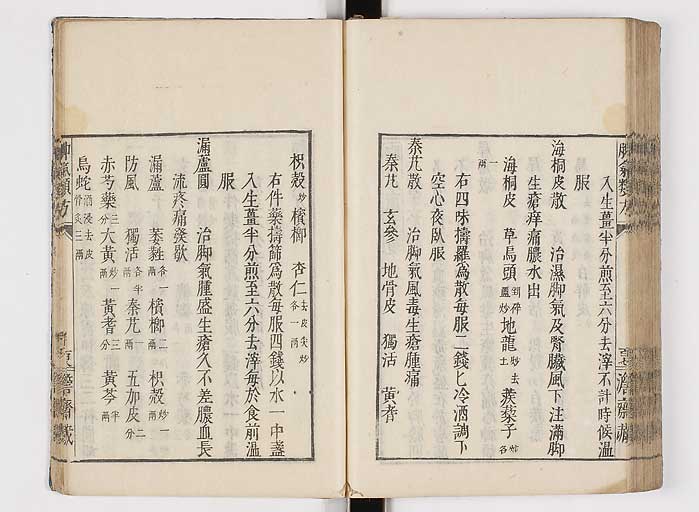 入生薑半分煎至六分去滓不計時候温
服
海桐皮散　治濕脚氣及腎臟風下注滿脚
生瘡痒痛膿水出
海桐皮　草烏頭　地龍　蒺蔾子
一兩
右四味擣羅爲散每服二錢匕冷酒調下
空心夜臥服
秦艽散　治脚氣風毒生瘡腫痛
秦艽　玄參　地骨皮　獨活　黃耆
枳殼炒　檳榔　杏仁去皮尖炒各一兩
右件藥擣篩爲散每服四錢以水一中盞
入生薑半分煎至六分去滓每於食前温
服
漏盧圓　治脚氣腫盛生瘡久不差膿血長
流疼痛發歇
漏蘆　萎蕤各一兩　檳榔二兩　枳殼炒一兩
防風　獨活各半兩　秦艽一兩　五加皮二分
赤芍藥三分　大黃炒一兩　黃耆三分　黃芩半兩
烏蛇酒浸去皮骨炙三兩